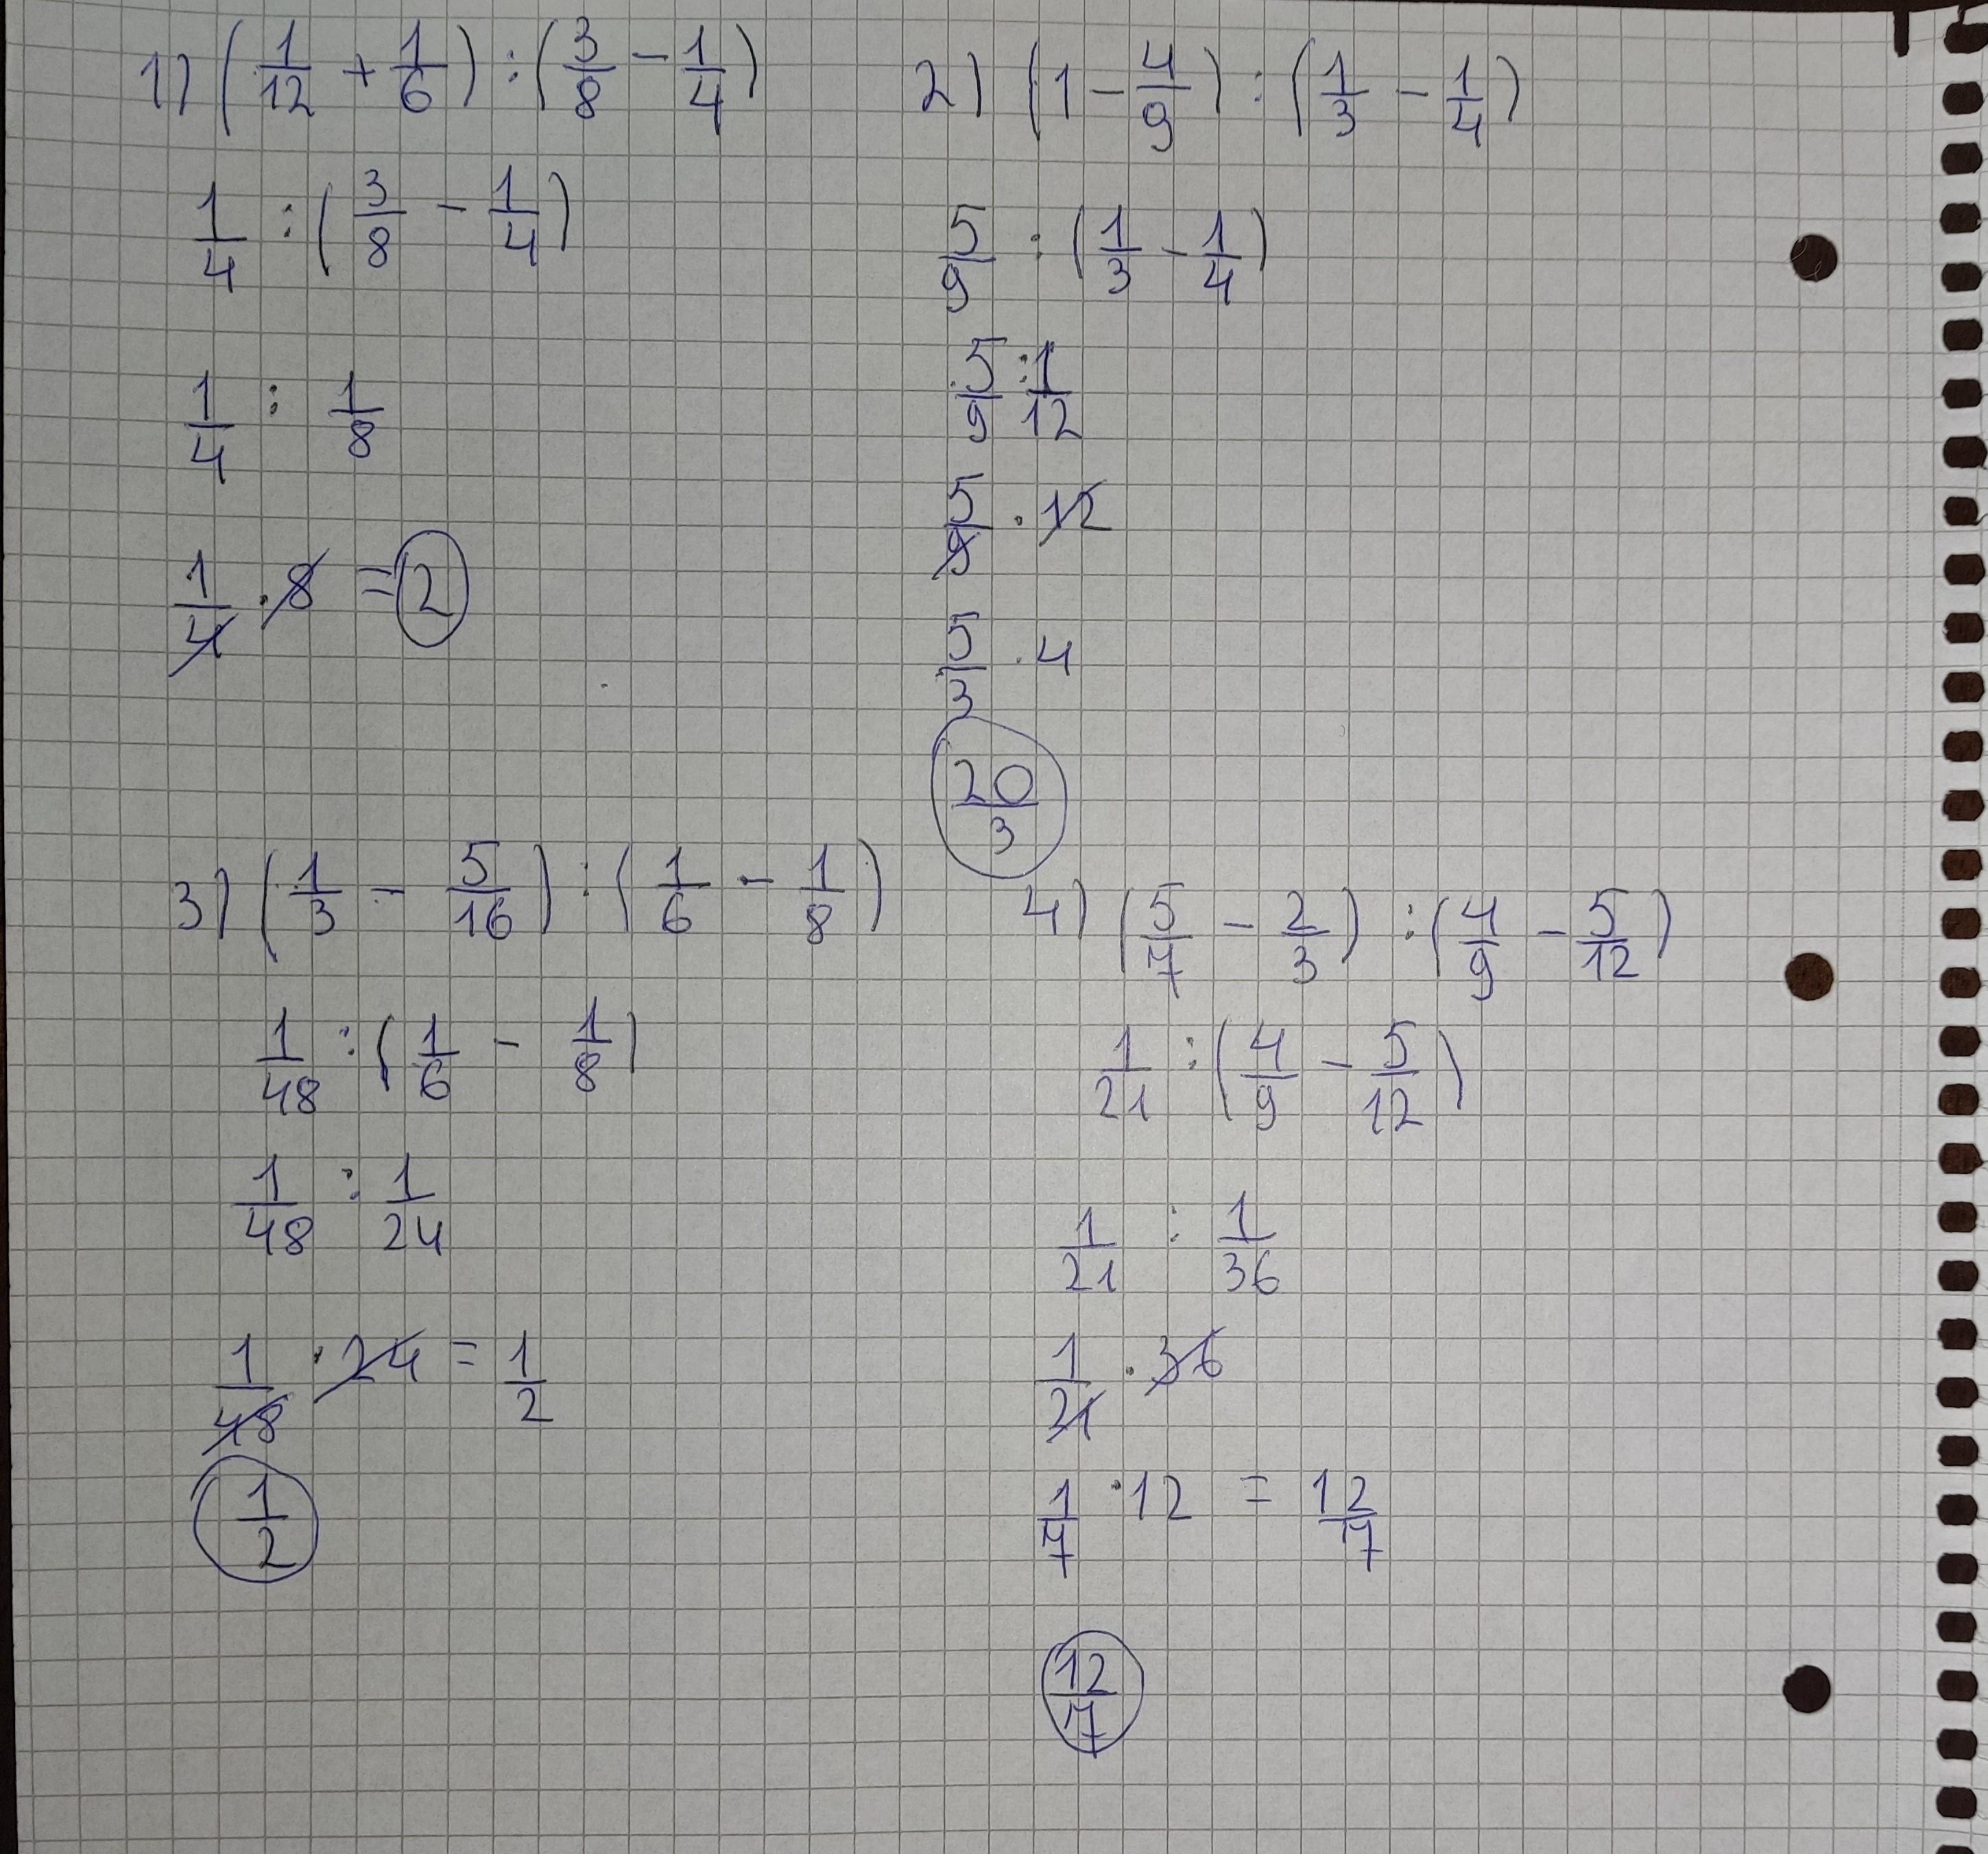 1) (1/12 + 1/6) : (3/8 - 1/4)
1/4 : (3/8 - 1/4)
1/4 : 1/8
1/4 · 8 = 2
2) (1 - 4/9) : (1/3 - 1/4)
5/9 : (1/3 - 1/4)
5/9 : 1/12
5/9 · 12
5/3 · 4
20/3
3) (1/3 - 5/16) : (1/6 - 1/8)
1/48 : (1/6 - 1/8)
1/48 : 1/24
1/48 · 24 = 1/2
1/2
4) (5/7 - 2/3) : (4/9 - 5/12)
1/21 : (4/9 - 5/12)
1/21 : 1/36
1/21 · 36
1/7 · 12 = 12/7
12/7